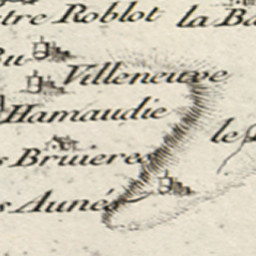 tre Roblot la Ba
Bu
Villeneuve
Hamaudie
le
s Bruieres
s Aunés